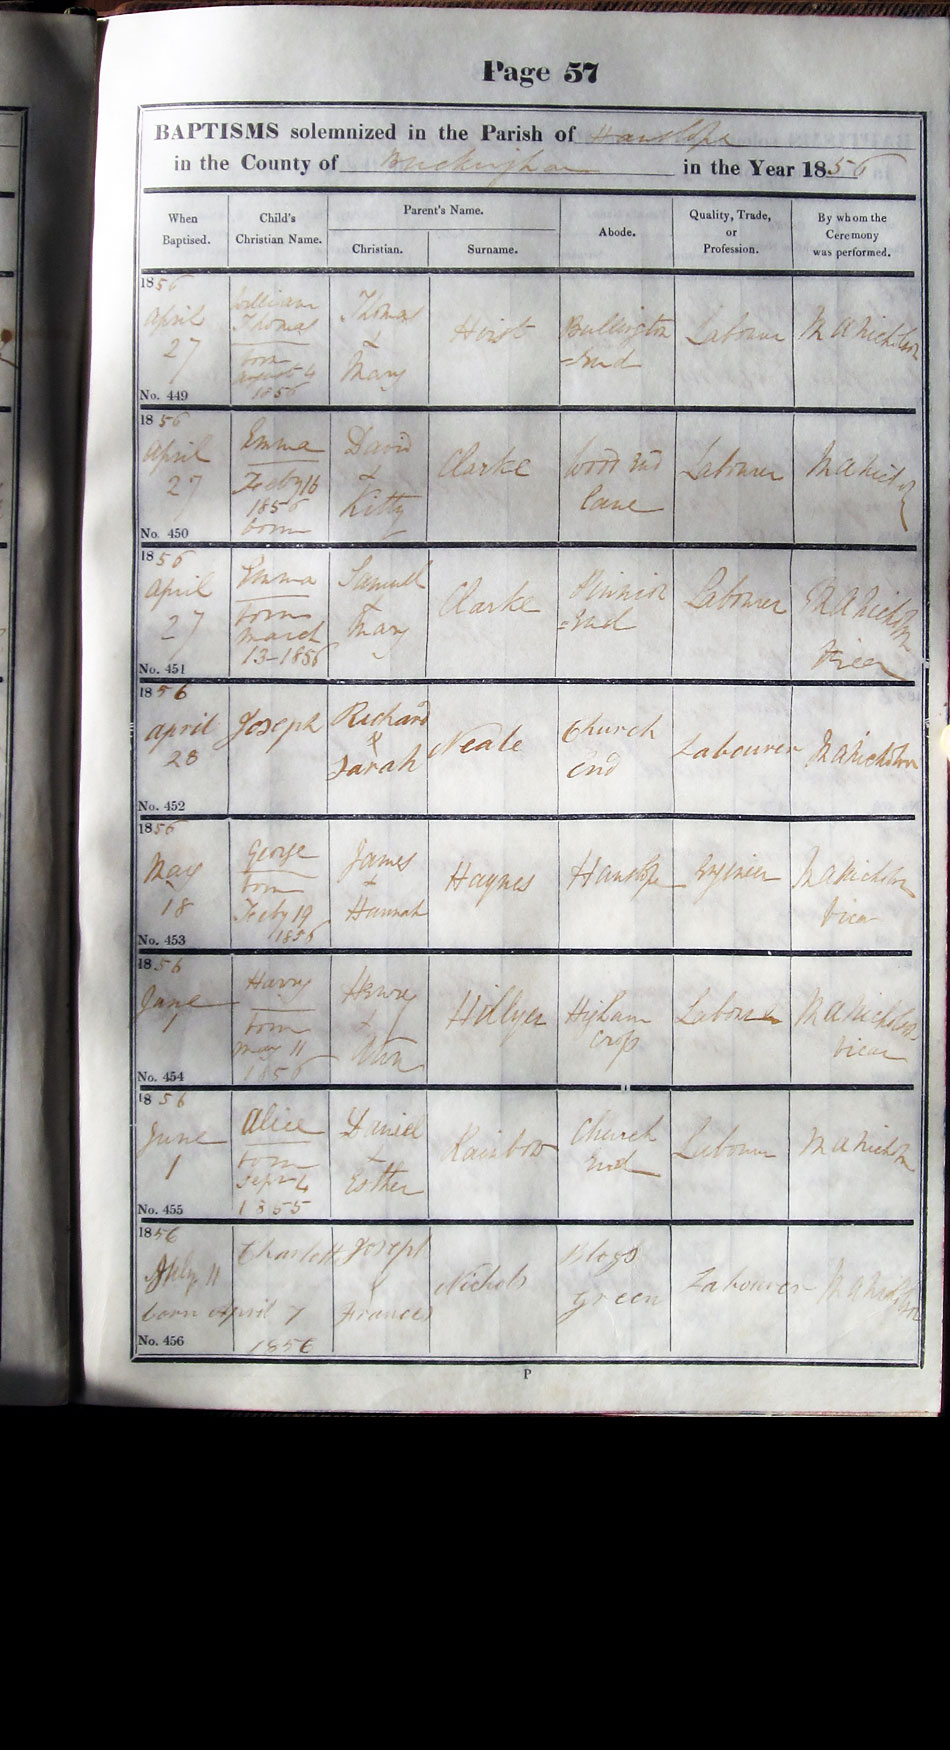 Page 57
BAPTISMS solemnized in the Parish of Hanslope
in the County of Buckingham in the Year 1856
When Baptised.
Child's Christian Name.
Parent's Name.
Christian.
Surname.
Abode.
Quality, Trade, or Profession.
By whom the Ceremony was performed.
1856
April
27
No. 449
William
Thomas
born
August 4
1856
Thomas
&
Mary
Hirst
Bullington
=End
Labourer
M A Nicholson
1856
April
27
No. 450
Emma
Feby 16
1856
born
David
&
Kitty
Clarke
Wood End
Lane
Labourer
M A Nichol
1856
April
27
No. 451
Emma
born
March
13-1856
Samuel
&
Mary
Clarke
=End
Labourer
M A Nicholson
Vicar
1856
April
28
No. 452
Joseph
Richard
&
Sarah
Neale
Church
End
Labourer
M A Nicholson
1856
May
18
No. 453
George
born
Feby 19
1856
James
&
Hannah
Haynes
Hanslope
Engineer
M A Nicholson
Vicar
1856
June
1
No. 454
Harry
born
May 11
1856
Henry
&
Ann
Hillyer
Higham
Cross
Labourer
M A Nicholson
Vicar
1856
June
1
No. 455
Alice
born
Sept 4
1855
Daniel
&
Esther
Rainbow
Church
End
Labourer
M A Nicholson
1856
July 11
born April 7
1856
No. 456
Charlott
Joseph
&
Frances
Nichols
Green
Labourer
M A Nicholson
P